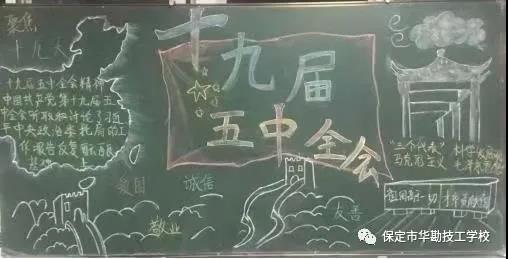 聚焦
十九大
十九届五中全会精神
中国共产党第十九届五
中全会听取和讨论了习近
平中央政治委托局的工
作报告
十九届
五中全会
爱国
诚信
敬业
友善
"三个代表"
马克思主义
科学发展
毛泽东思想
祖国高于一切
保定市华勘技工学校